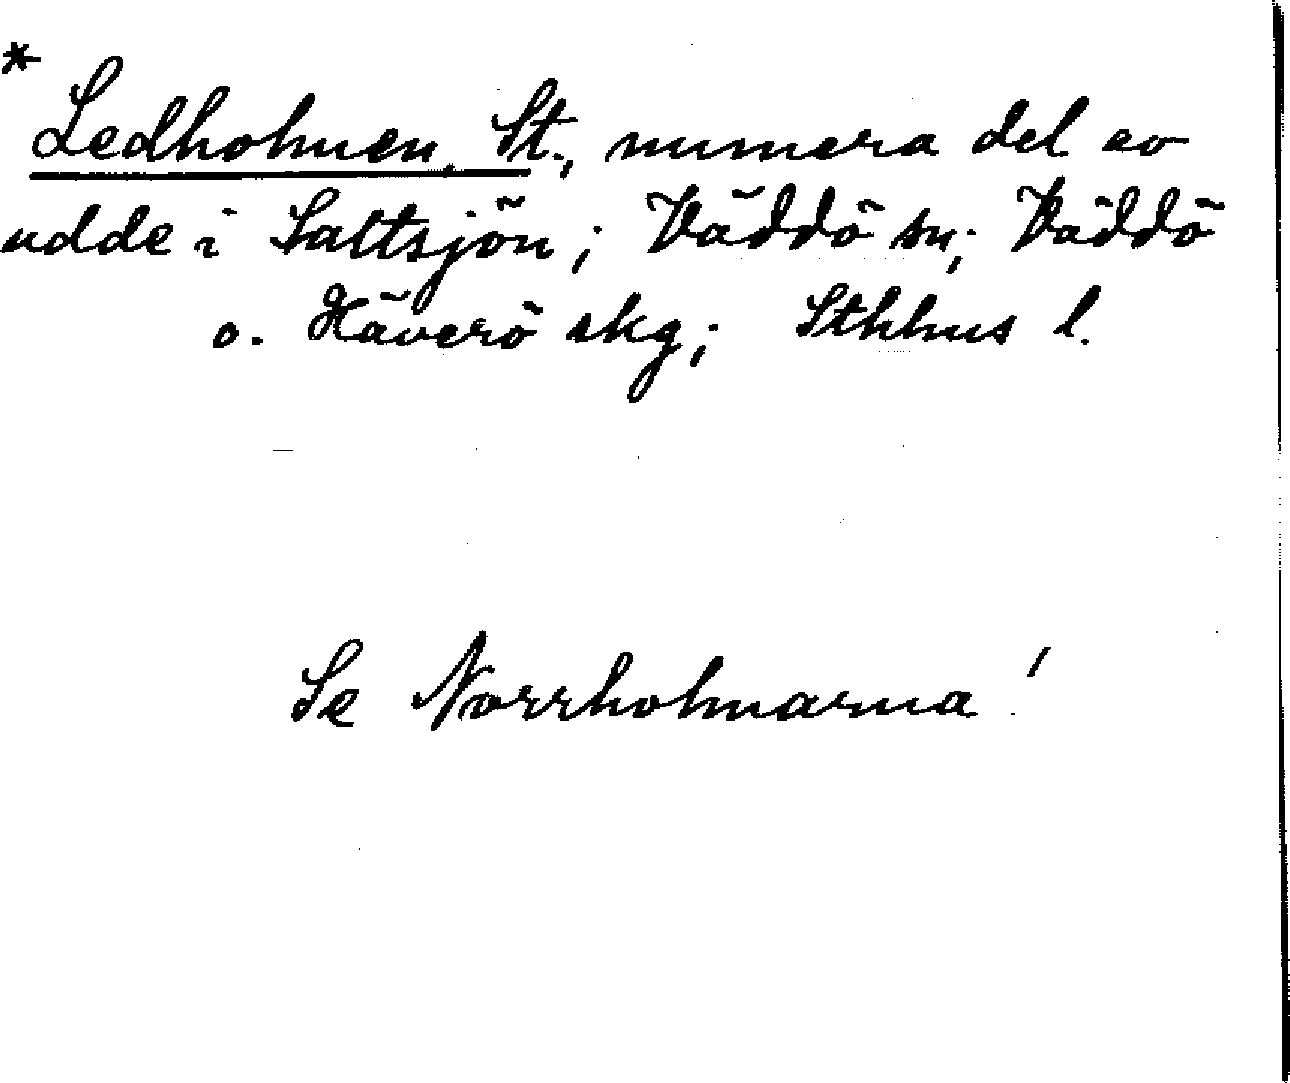 * Ledholmen, St., numera del av
udde i Saltsjön; Väddö sn; Väddö
o. Häverö skg; Sthlms l.
Se Norrholmarna!